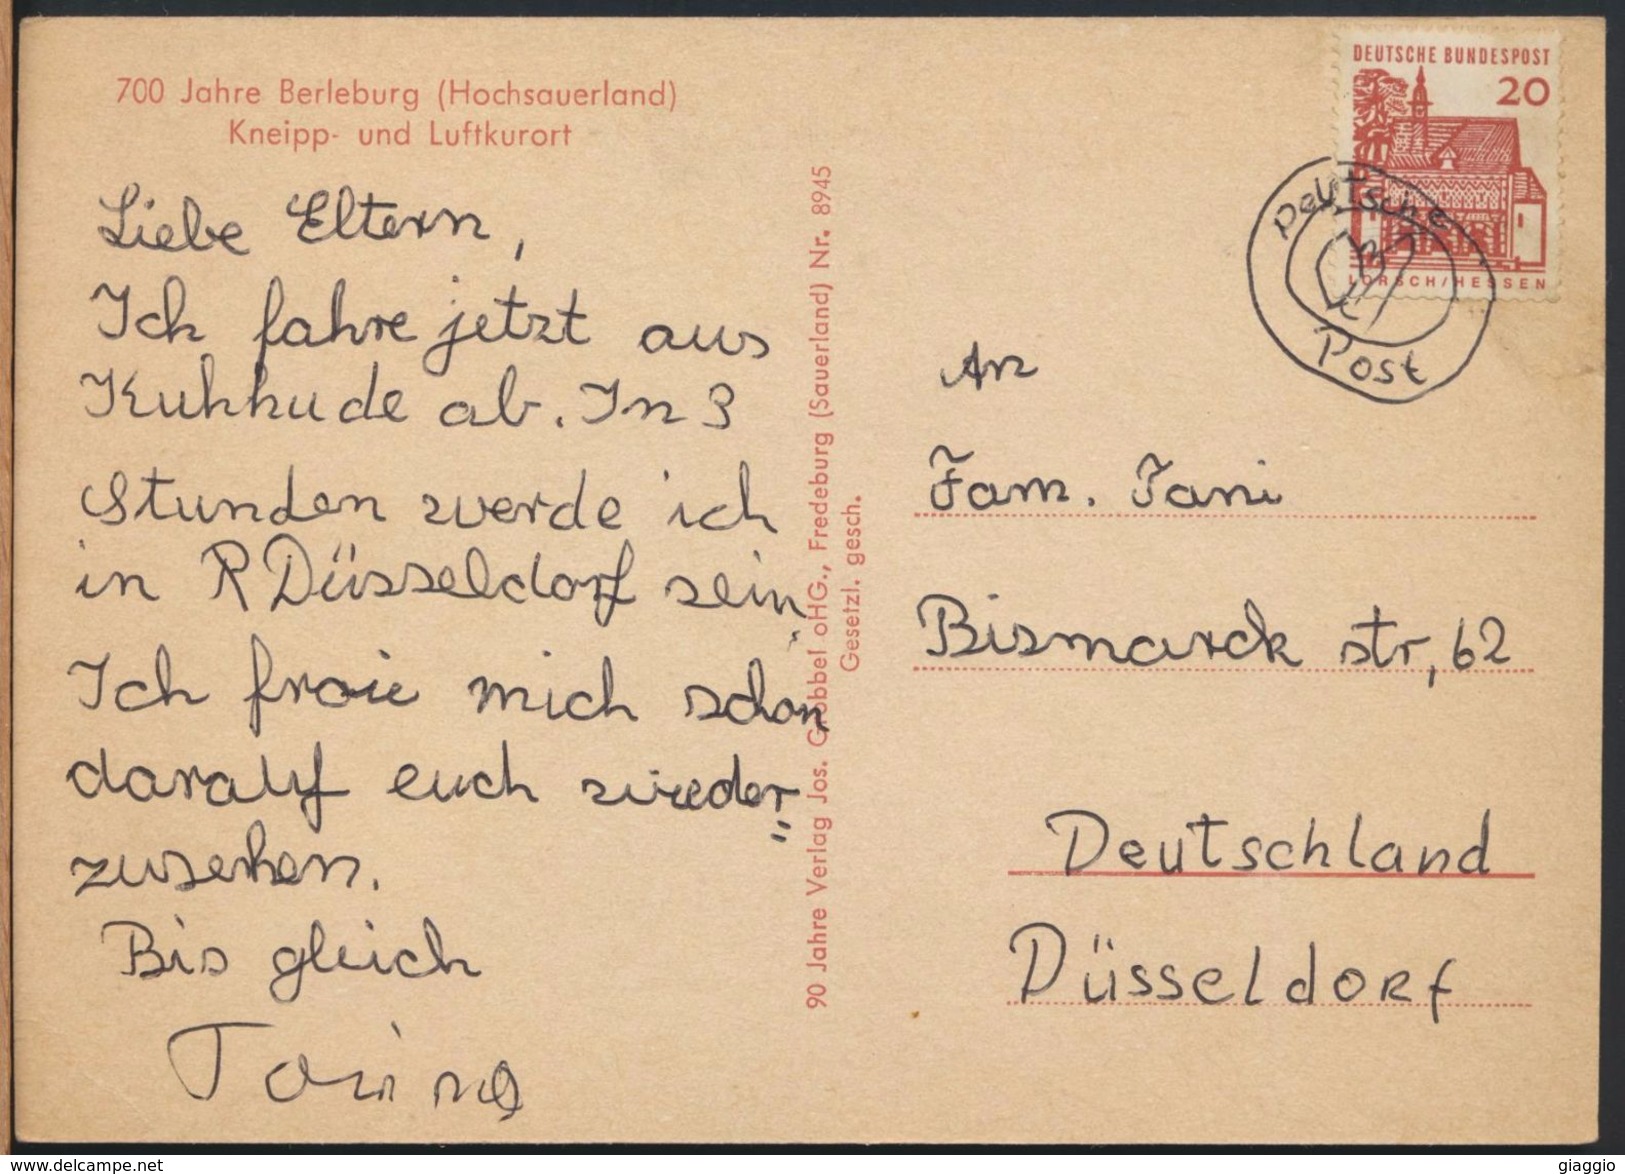 700 Jahre Berleburg (Hochsauerland)
Kneipp- und Luftkurort
Liebe Eltern,
Ich fahre jetzt aus
Kuhhude ab. In 3
Stunden werde ich
in R Düsseldorf sein.
Ich froie mich schon
darauf euch wieder
zusehen.
Bis gleich
90 Jahre Verlag Jos. Grobbel oHG., Fredeburg (Sauerland) Nr. 8945
Gesetzl. gesch.
DEUTSCHE BUNDESPOST
20
LORSCH/HESSEN
Deutsche
Post
An
Fam. Tani
Bismarck str, 62
Deutschland
Düsseldorf
www.delcampe.net
giaggio